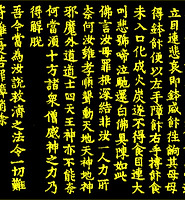 立目連悲哀即鉢盛飯往餉其母母
得鉢飯便以左手障鉢右手摶飯食
未入口化成火炭遂不得食目連大
叫悲號啼泣馳還白佛具陳如此
佛言汝母罪根深結非汝一人力所
奈何汝雖孝順聲動天地天神地神
邪魔外道道士四天王神亦不能奈
何當須十方諸衆僧威神之力乃
得解脫
吾今當為汝說救濟之法令一切難